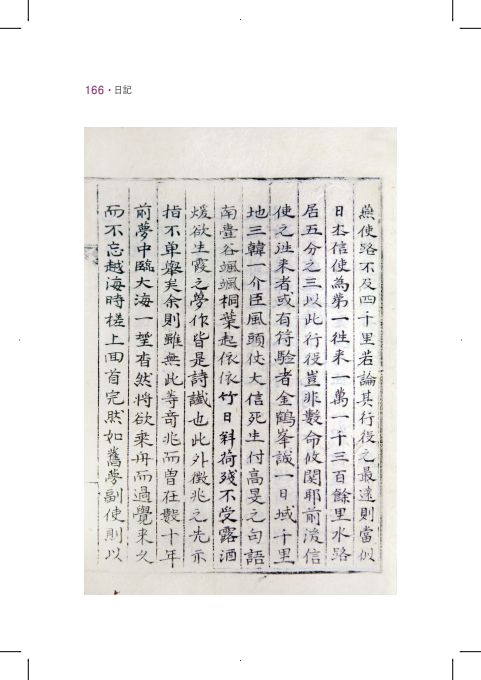 166 · 日記
燕使路不及四千里若論其行役之最遠則當以
日本信使為第一往来一萬一千三百餘里水路
居五分之三以此行役豈非數命攸関耶前後信
使之往来者或有符驗者金鶴峯誠一日域千里
地三韓一介臣風頭仗大信死生付高旻之句語
南壺谷颯颯桐葉起依依竹日斜荷殘不受露酒
煖欲生霞之夢作皆是詩讖也此外徵兆之先示
指不單擧矣余則雖無此等竒兆而曽在數十年
前夢中臨大海一望杳然将欲乘舟而過覺来久
而不忘越海時槎上回首宛然如舊夢副使則以